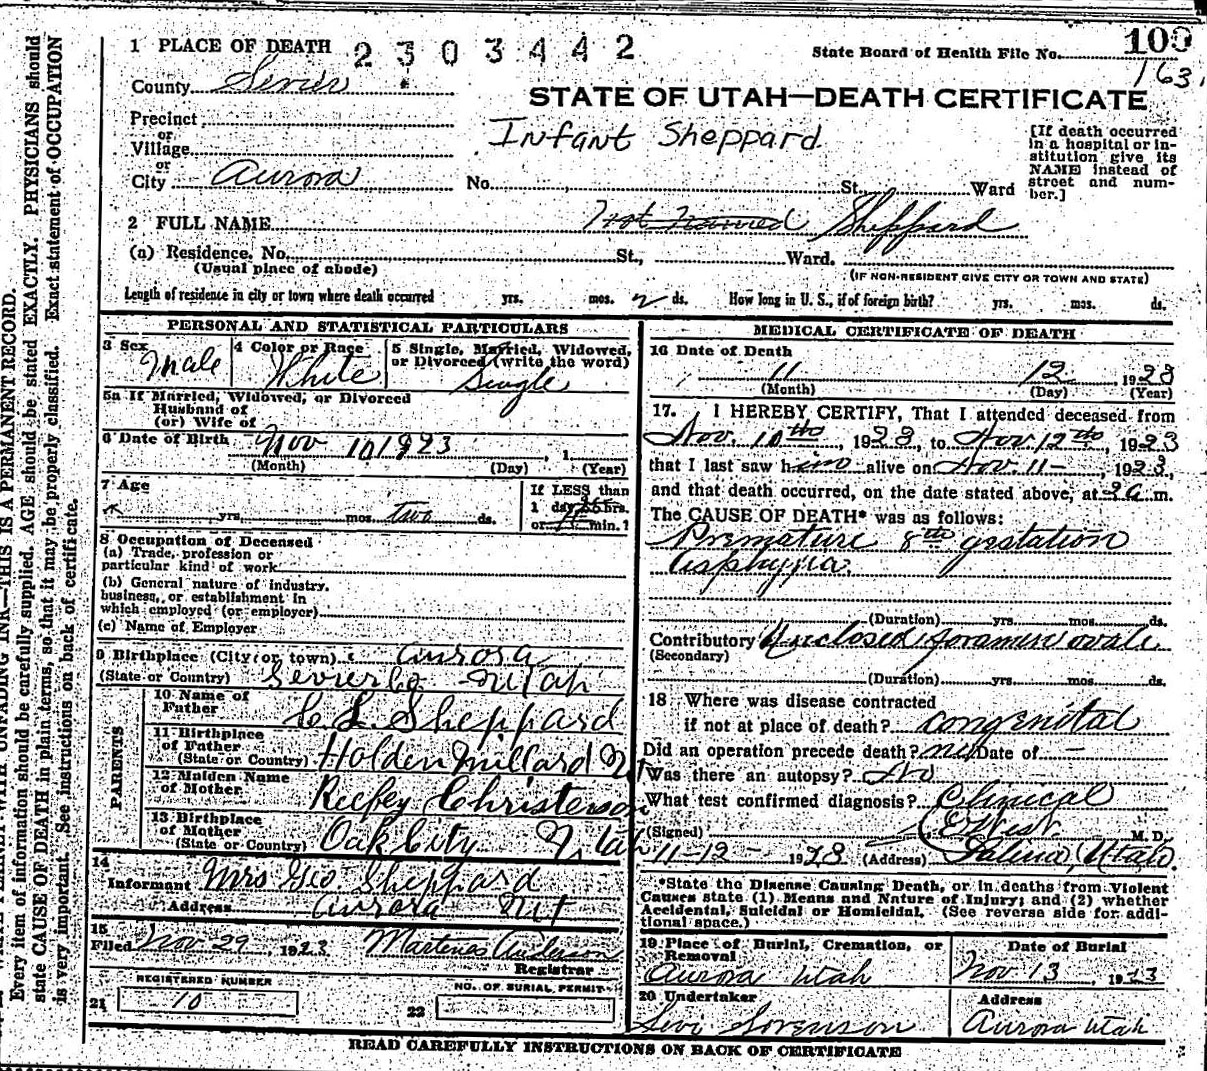 1 PLACE OF DEATH 2303442
State Board of Health File No. 109
163
County Sevier
STATE OF UTAH—DEATH CERTIFICATE
Precinct
or
Village
or
City Aurora
Infant Sheppard
No. St., Ward
[If death occurred
in a hospital or in-
stitution give its
NAME instead of
street and num-
ber.]
2 FULL NAME Not Named Sheppard
(a) Residence. No. St., Ward.
(Usual place of abode)
(IF NON-RESIDENT GIVE CITY OR TOWN AND STATE)
Length of residence in city or town where death occurred yrs. mos. 2 ds. How long in U. S., if of foreign birth? yrs. mos. ds.
PERSONAL AND STATISTICAL PARTICULARS
3 Sex Male
4 Color or Race White
5 Single, Married, Widowed,
or Divorced (write the word)
Single
5a If Married, Widowed, or Divorced
Husband of
(or) Wife of
6 Date of Birth Nov 10 1923, 1
(Month) (Day) (Year)
7 Age
yrs. mos. two ds.
If LESS than
1 day hrs.
or min.?
8 Occupation of Deceased
(a) Trade, profession or
particular kind of work
(b) General nature of industry,
business, or establishment in
which employed (or employer)
(c) Name of Employer
9 Birthplace (City or town) Aurora
(State or Country) Sevier Co Utah
PARENTS
10 Name of
Father C. L. Sheppard
11 Birthplace
of Father
(State or Country) Holden Millard Ut
12 Maiden Name
of Mother Christenson
13 Birthplace
of Mother
(State or Country) Oak City Utah
14
Informant Mrs Geo Sheppard
Address Aurora Ut
15
Filed Nov 29, 1923 Martenus Anderson
Registrar
REGISTERED NUMBER
21 10
NO. OF BURIAL PERMIT
22
MEDICAL CERTIFICATE OF DEATH
16 Date of Death
11 12, 1923
(Month) (Day) (Year)
17. I HEREBY CERTIFY, That I attended deceased from
Nov. 10th, 1923, to Nov 12th, 1923
that I last saw him alive on Nov. 11-, 1923,
and that death occurred, on the date stated above, at a m.
The CAUSE OF DEATH* was as follows:
Premature 8th gestation
Asphyxia.
(Duration) yrs. mos. ds.
Contributory Unclosed foramen ovale
(Secondary)
(Duration) yrs. mos. ds.
18 Where was disease contracted
if not at place of death? Congenital
Did an operation precede death? no Date of —
Was there an autopsy? No
What test confirmed diagnosis? Clinical
(Signed) West M. D.
11-12-1923 (Address) Salina, Utah.
*State the Disease Causing Death, or in deaths from Violent
Causes state (1) Means and Nature of Injury; and (2) whether
Accidental, Suicidal or Homicidal. (See reverse side for addi-
tional space.)
19 Place of Burial, Cremation, or
Removal
Aurora Utah
Date of Burial
Nov 13, 1923
20 Undertaker
Levi Sorenson
Address
Aurora Utah
READ CAREFULLY INSTRUCTIONS ON BACK OF CERTIFICATE
WITH UNFADING INK—THIS IS A PERMANENT RECORD.
Every item of information should be carefully supplied. AGE should be stated EXACTLY. PHYSICIANS should
state CAUSE OF DEATH in plain terms, so that it may be properly classified. Exact statement of OCCUPATION
is very important. See instructions on back of certificate.